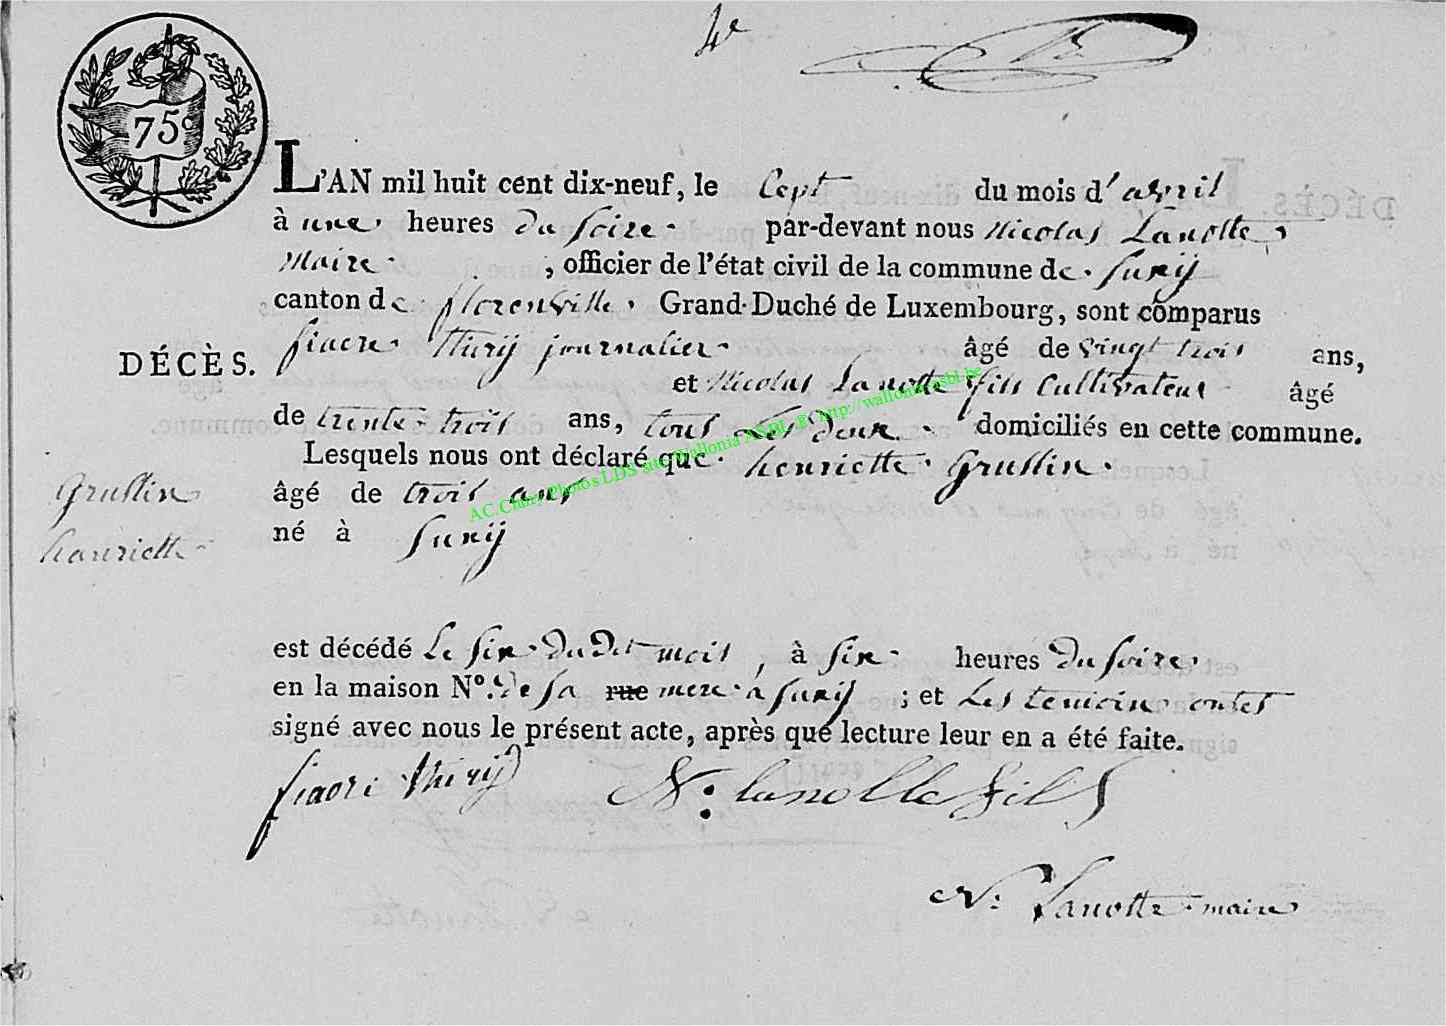 4e
75c
L'AN mil huit cent dix-neuf, le Cept du mois d'avril
à une heures du soire par-devant nous Nicolas Lanotte
Maire, officier de l'état civil de la commune de Suxij
canton de florenville Grand-Duché de Luxembourg, sont comparus
DÉCÈS. fiacre thirij journalier âgé de vingt trois ans,
et Nicolas Lanotte fils Cultivateur âgé
de trente-trois ans, tous les deux domiciliés en cette commune.
Lesquels nous ont déclaré que henriette Gruslin
âgé de trois ans
né à Suxij
Gruslin
hanriette
est décédé Le six du dit mois, à six heures du soire
en la maison N°. de sa rue mere a suxij ; et Les temoins ontes
signé avec nous le présent acte, après que lecture leur en a été faite.
fiacre thirij N. lanotte fils
N. Lanotte maire
AC.Chiny Photos LDS site Wallonia ASBL @ http://wallonia-asbl.be